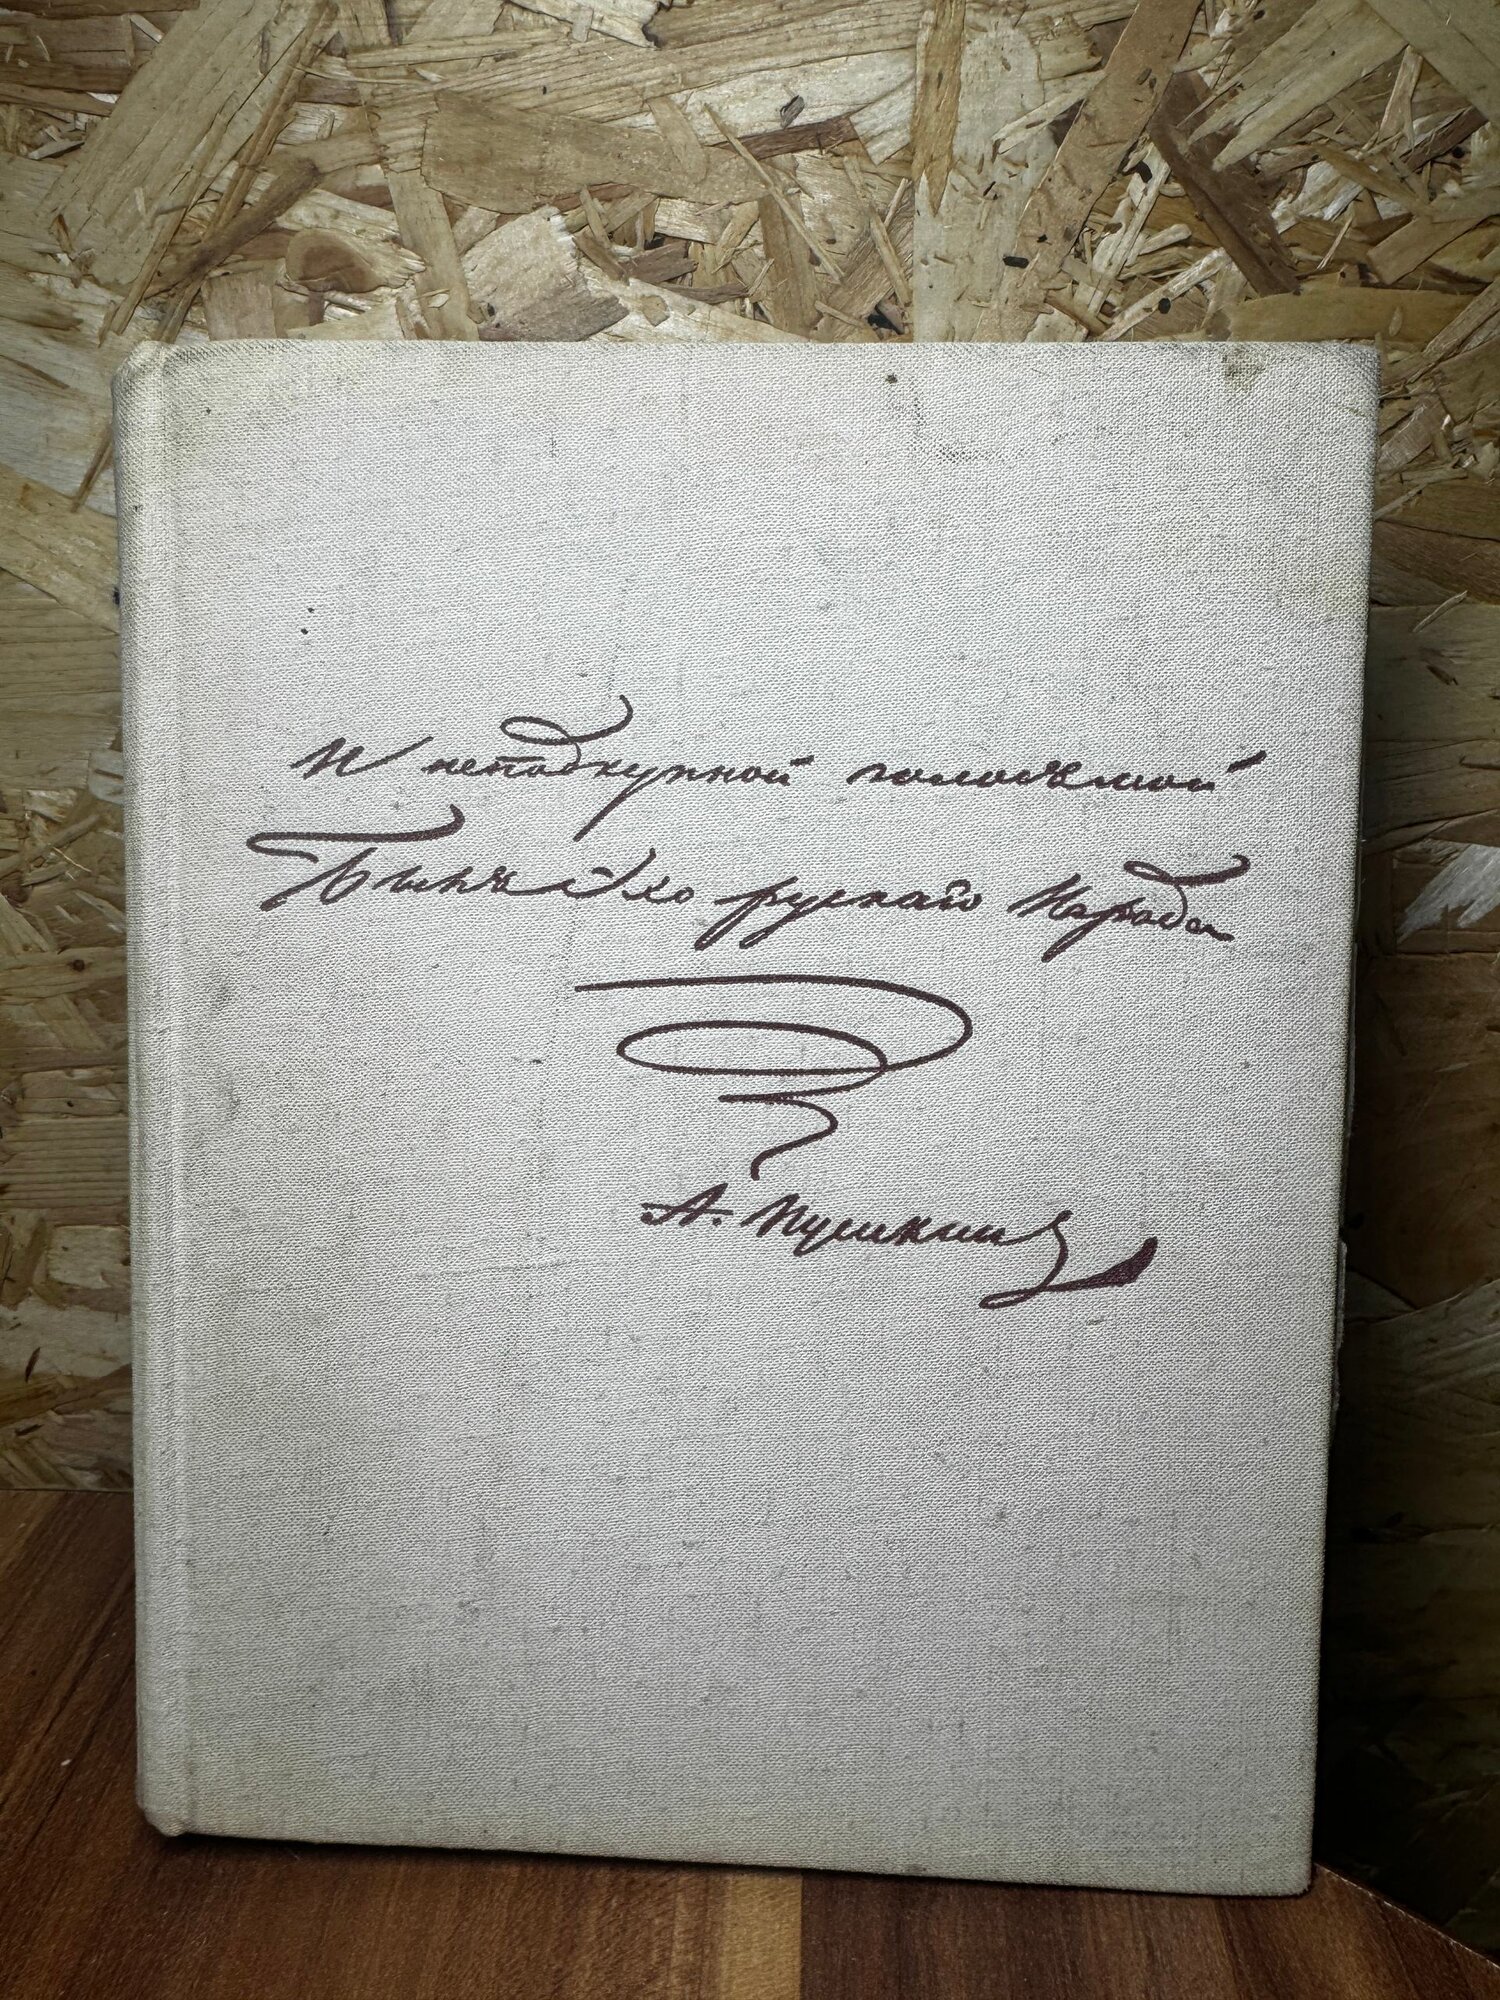 И неподкупной голосъ мой
Былъ Эхо рускаго Народа
А. Пушкинъ